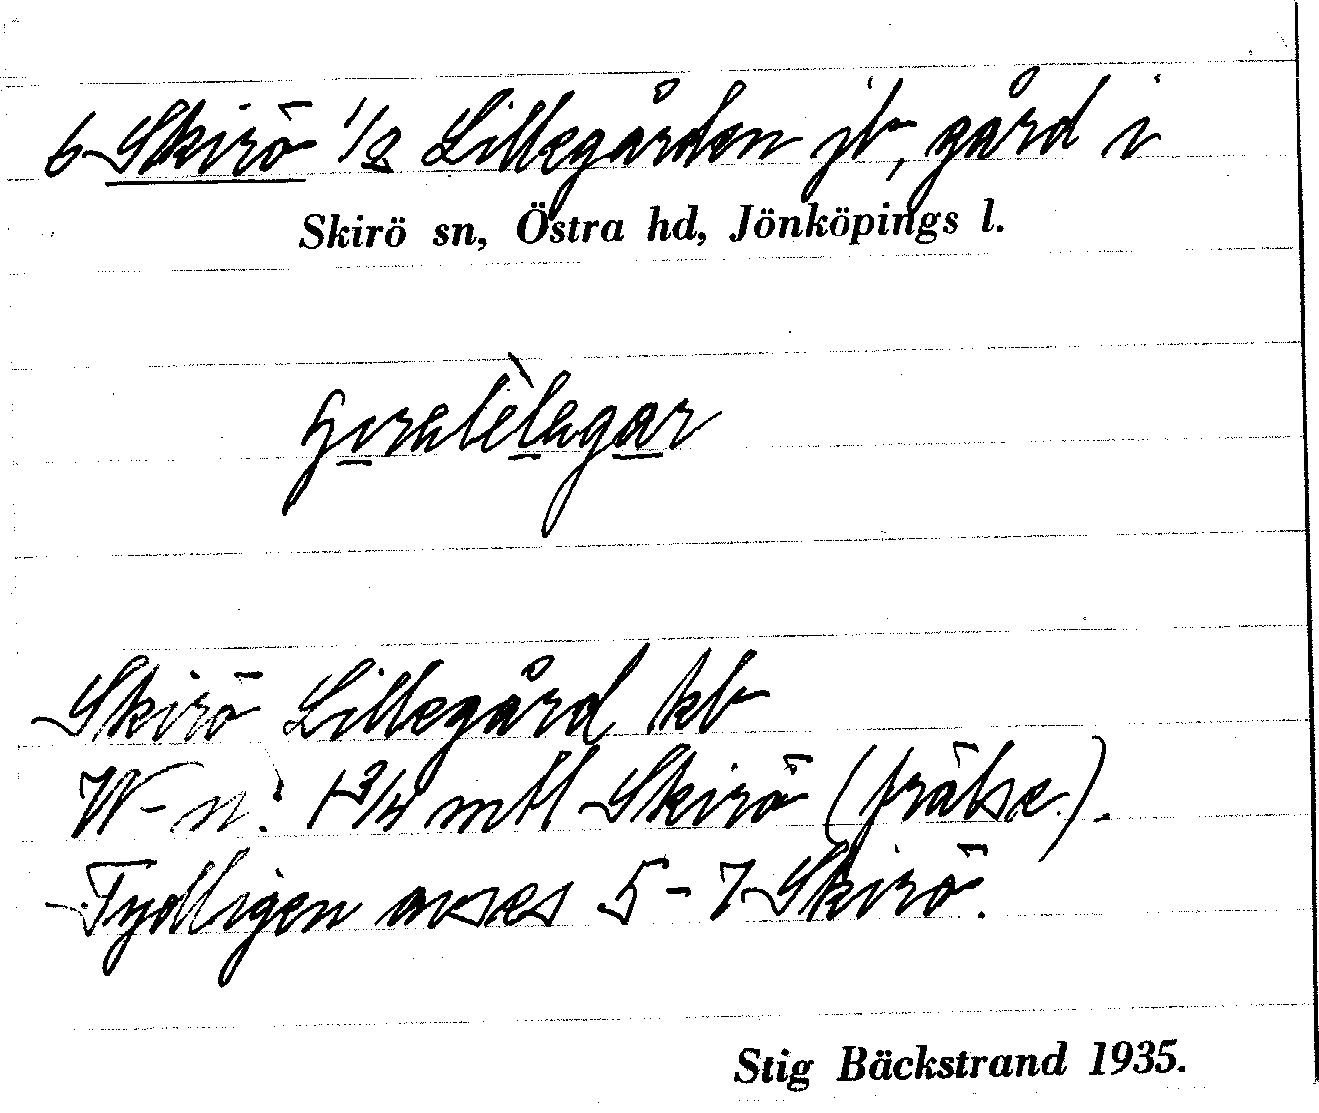 6 Skirö 1/2 Lillegården jb, gård i
Skirö sn, Östra hd, Jönköpings l.
Skirö Lillegård kb
W-n: 1 3/4 mtl Skirö (frälse).
Tydligen avses 5-7 Skirö.
Stig Bäckstrand 1935.